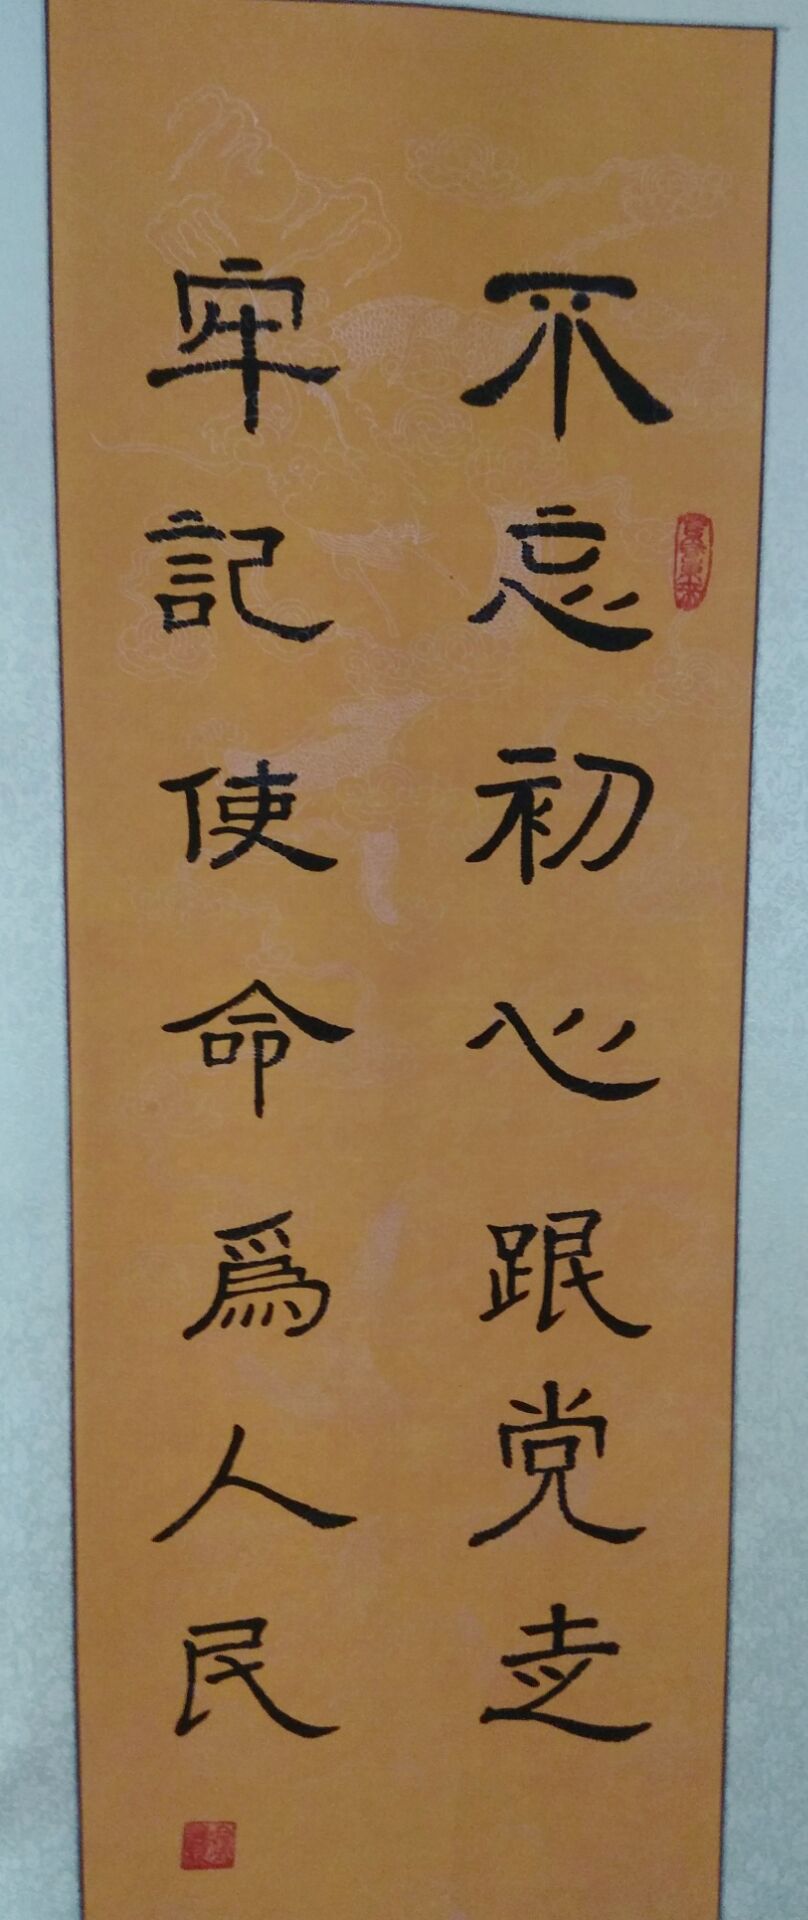 不忘初心跟党走
牢記使命爲人民